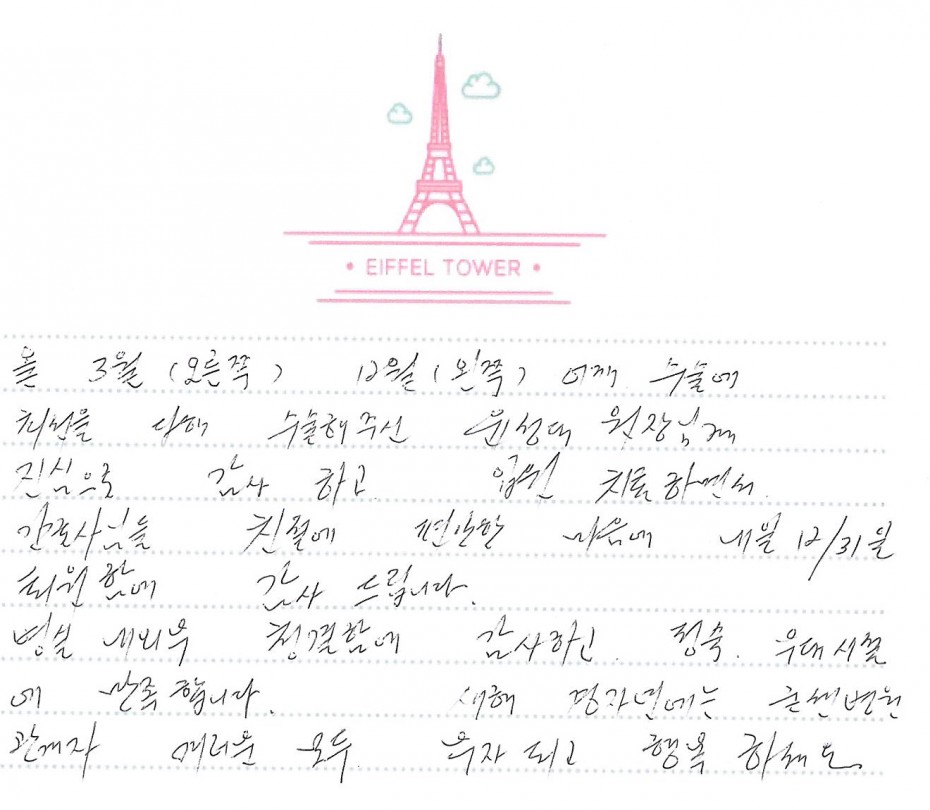 • EIFFEL TOWER •
올 3월 (오른쪽) 12월 (왼쪽) 어깨 수술에
최선을 다해 수술해주신 윤성대 원장님께
진심으로 감사 하고. 입원 치료하면서.
간호사님들 친절에 편안한 마음에 내일 12/31일
퇴원 함에 감사 드립니다.
병실 내외부 청결함에 감사하고. 정숙. 부대시설
에 만족 합니다. 새해 경자년에는 큰센병원
관계자 여러분 모두. 부자 되고 행복 하세요.